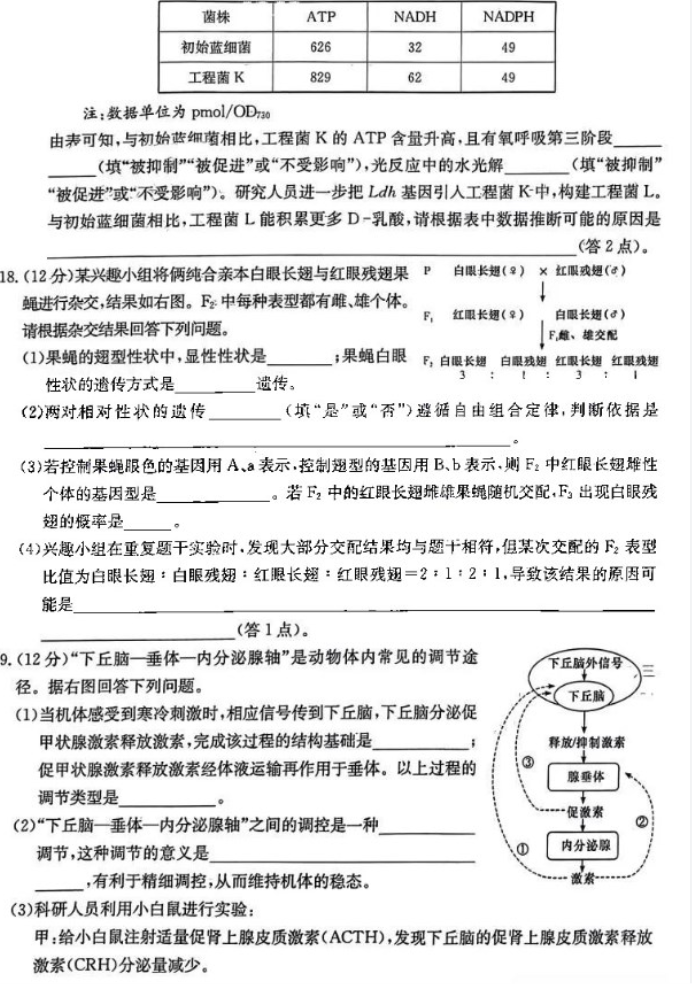 菌株 ATP NADH NADPH
初始蓝细菌 626 32 49
工程菌 K 829 62 49
注:数据单位为 pmol/OD₇₃₀
由表可知,与初始蓝细菌相比,工程菌 K 的 ATP 含量升高,且有氧呼吸第三阶段______
______(填“被抑制”“被促进”或“不受影响”),光反应中的水光解______(填“被抑制”
“被促进”或“不受影响”)。研究人员进一步把 Ldh 基因引入工程菌 K 中,构建工程菌 L。
与初始蓝细菌相比,工程菌 L 能积累更多 D-乳酸,请根据表中数据推断可能的原因是
______(答 2 点)。
18.(12 分)某兴趣小组将俩纯合亲本白眼长翅与红眼残翅果
蝇进行杂交,结果如右图。F₂ 中每种表型都有雌、雄个体。
请根据杂交结果回答下列问题。
(1)果蝇的翅型性状中,显性性状是______;果蝇白眼
性状的遗传方式是______遗传。
P 白眼长翅(♀) × 红眼残翅(♂)
F₁ 红眼长翅(♀) 白眼长翅(♂)
F₁雌、雄交配
F₂ 白眼长翅 白眼残翅 红眼长翅 红眼残翅
3 : 1 : 3 : 1
(2)两对相对性状的遗传______(填“是”或“否”)遵循自由组合定律,判断依据是
______。
(3)若控制果蝇眼色的基因用 A、a 表示,控制翅型的基因用 B、b 表示,则 F₂ 中红眼长翅雌性
个体的基因型是______。若 F₂ 中的红眼长翅雌雄果蝇随机交配,F₃ 出现白眼残
翅的概率是______。
(4)兴趣小组在重复题干实验时,发现大部分交配结果均与题干相符,但某次交配的 F₂ 表型
比值为白眼长翅:白眼残翅:红眼长翅:红眼残翅=2:1:2:1,导致该结果的原因可
能是______
______(答 1 点)。
9.(12 分)“下丘脑—垂体—内分泌腺轴”是动物体内常见的调节途
径。据右图回答下列问题。
(1)当机体感受到寒冷刺激时,相应信号传到下丘脑,下丘脑分泌促
甲状腺激素释放激素,完成该过程的结构基础是______;
促甲状腺激素释放激素经体液运输再作用于垂体。以上过程的
调节类型是______。
(2)“下丘脑—垂体—内分泌腺轴”之间的调控是一种______
调节,这种调节的意义是______
______,有利于精细调控,从而维持机体的稳态。
下丘脑外信号
下丘脑
释放/抑制激素
③
腺垂体
促激素
②
①
内分泌腺
激素
(3)科研人员利用小白鼠进行实验:
甲:给小白鼠注射适量促肾上腺皮质激素(ACTH),发现下丘脑的促肾上腺皮质激素释放
激素(CRH)分泌量减少。